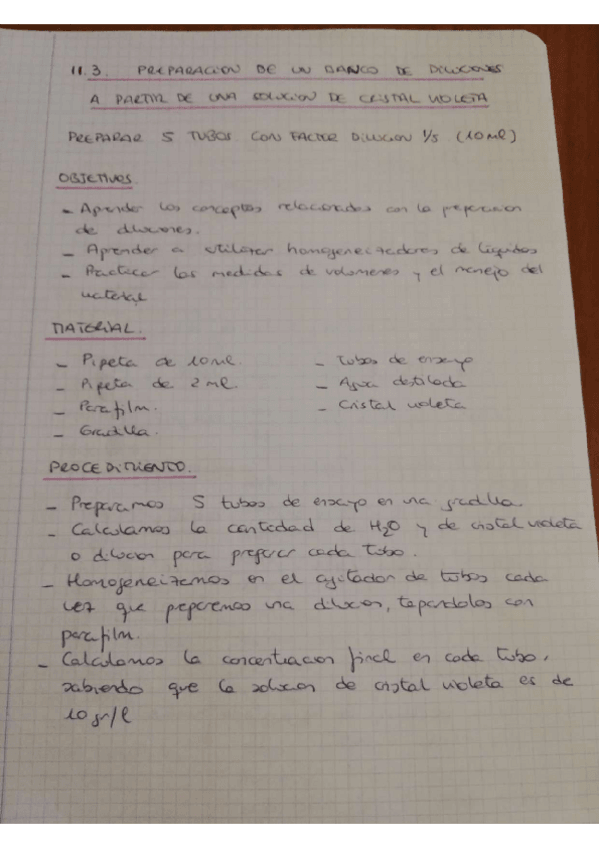 11.3. PREPARACION DE UN BANCO DE DILUCIONES
A PARTIR DE UNA SOLUCION DE CRISTAL VIOLETA
PREPARAR 5 TUBOS CON FACTOR DILUCION 1/5 (10 ml)
OBJETIVOS
- Aprender los conceptos relacionados con la preparacion
de diluciones.
- Aprender a utilizar homogeneizadores de liquidos
- Practicar las medidas de volumenes y el manejo del
material
MATERIAL.
- Pipeta de 10 ml.
- Pipeta de 2 ml.
- Parafilm.
- Gradilla.
- Tubos de ensayo
- Agua destilada
- Cristal violeta
PROCEDIMIENTO.
- Preparamos 5 tubos de ensayo en una gradilla.
- Calculamos la cantidad de H2O y de cristal violeta
o dilucion para preparar cada tubo.
- Homogeneizamos en el agitador de tubos cada
vez que preparemos una dilucion, tapandolos con
parafilm.
- Calculamos la concentracion final en cada tubo,
sabiendo que la solucion de cristal violeta es de
10 gr/l